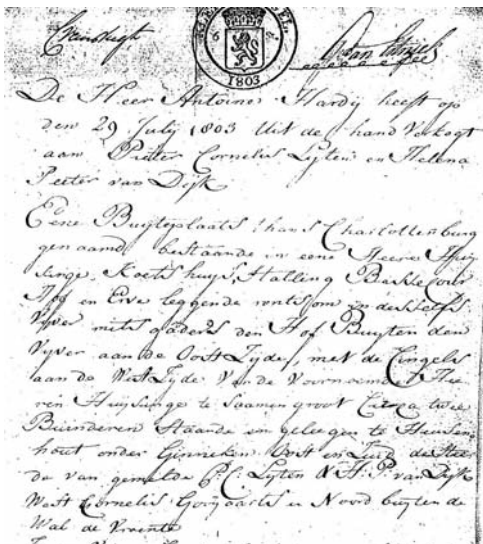 6
1803
De Heer Antoine Hardij heeft op
den 29 July 1803 Uit de hand Verkogt
aan Pieter Cornelis Lyten en Helena
Peeter van Dijk
Eene Buytenplaats thans Charlottenburg
genaamd, bestaande in eene Heere Huy
singe, Koetshuys, Stalling
Hof en Erve leggende rontsom in deszelfs
Vijver mits gaders den Hof Buyten den
Vyver aan de Oost Zyde, met de Cingels
aan de West Zyde Van de Voornoemde Hee
ren Huysinge te saamen groot Circa twee
Buinderen Staande en gelegen te
hout onder Ginneken Oost en Zuid de Hee
de van gemelde P: C: Lyten & H: P: van Dyk
West Cornelis Goyaarts en Noord buyten de
Wal de Vrunte